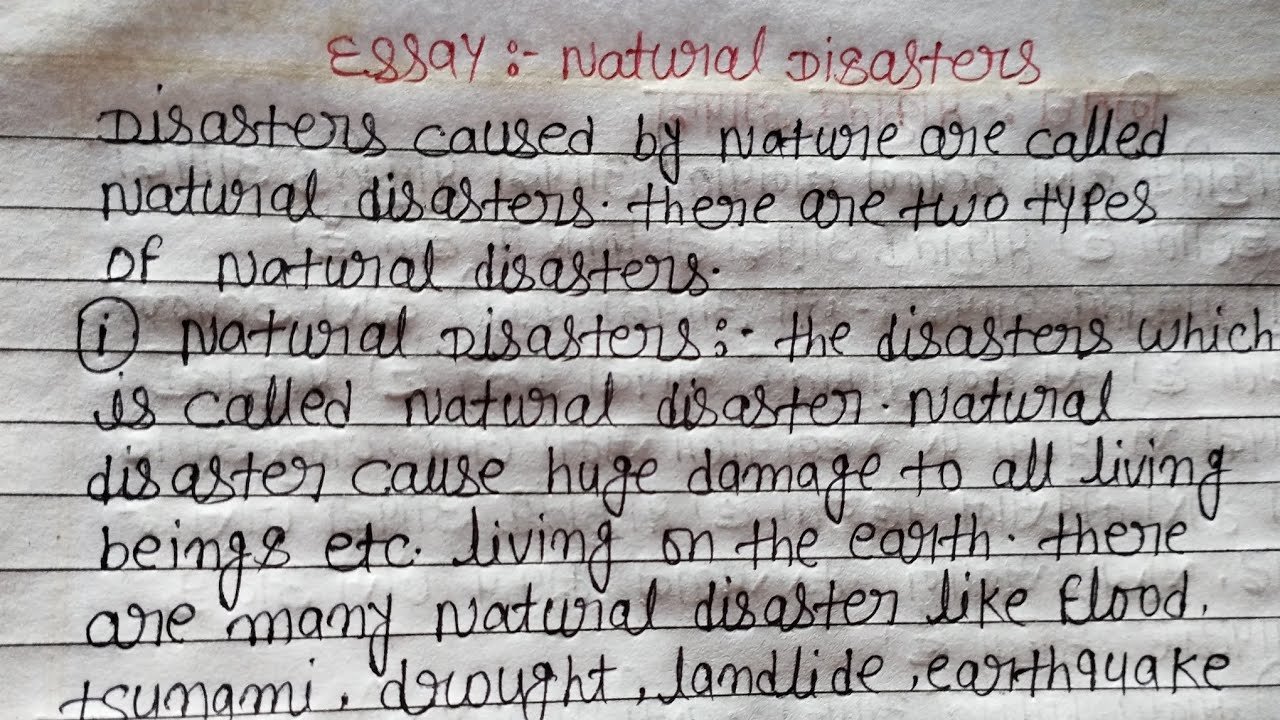 Essay :- Natural Disasters
Disasters caused by Nature are called
Natural disasters. there are two types
of Natural disasters.
(i) Natural Disasters :- the disasters which
is called Natural disaster. Natural
disaster cause huge damage to all living
beings etc. living on the earth. there
are many Natural disaster like flood,
tsunami, drought, landlide, earthquake